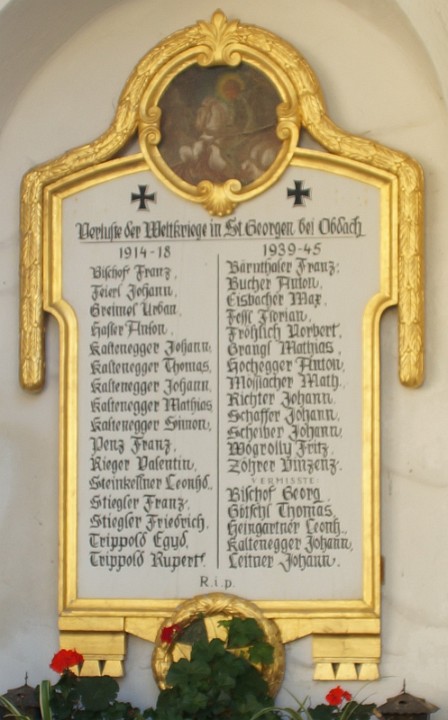 Verluste der Weltkriege in St. Georgen bei Obdach
1914-18
Bischof Franz,
Feierl Johann,
Greimel Urban,
Hasler Anton,
Kaltenegger Johann,
Kaltenegger Thomas,
Kaltenegger Johann,
Kaltenegger Mathias
Kaltenegger Simon,
Penz Franz,
Rieger Valentin,
Steinkellner Leonhd.,
Stiegler Franz,
Stiegler Friedrich.
Trippold Egyd,
Trippold Rupert.
1939-45
Bärnthaler Franz,
Bucher Anton,
Eisbacher Max,
Feßl Florian,
Fröhlich Norbert,
Grangl Mathias,
Hochegger Anton,
Moßlacher Math.,
Richter Johann,
Schaffer Johann,
Scheiber Johann,
Wögrolly Fritz,
Zöhrer Vinzenz.
VERMISSTE:
Bischof Georg,
Götschl Thomas,
Heingartner Leonh.,
Kaltenegger Johann,
Leitner Johann.
R.i.p.